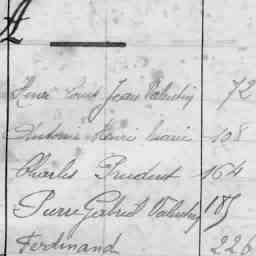 A
Henri Louis Jean Valentin 72
Antoine Henri Marie 108
Charles Prudent 164
Pierre Gabriel Valentin 185
Ferdinand 226